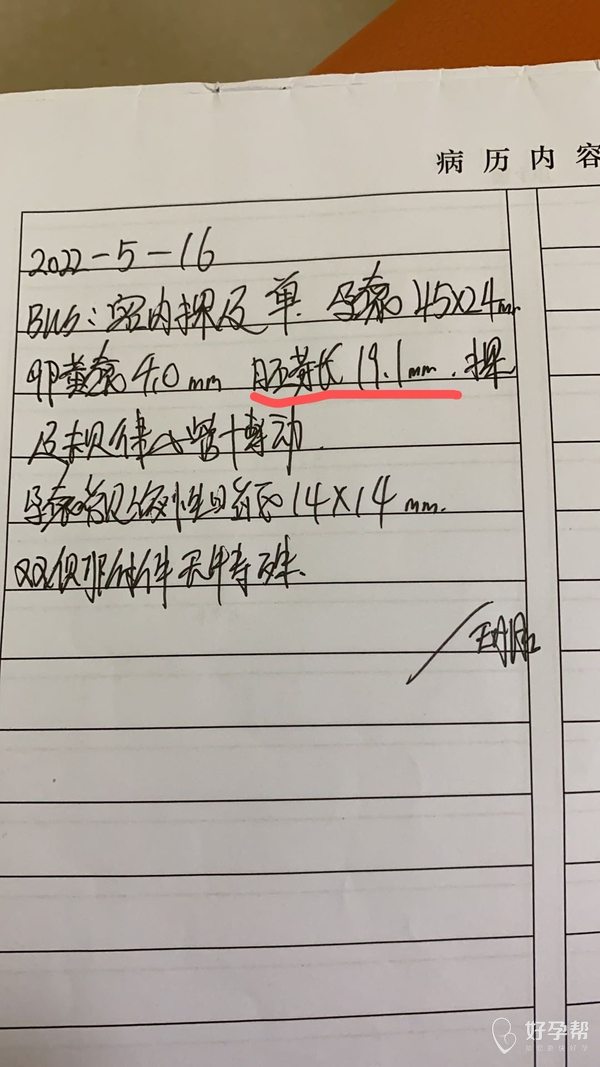 病历内容
2022-5-16
BUS:宫内探及单 孕囊45X24mm
卵黄囊4.0mm 胚芽长19.1mm.探
及规律心管搏动.
孕囊旁见 14X14mm.
双侧附件 特殊.
好孕帮